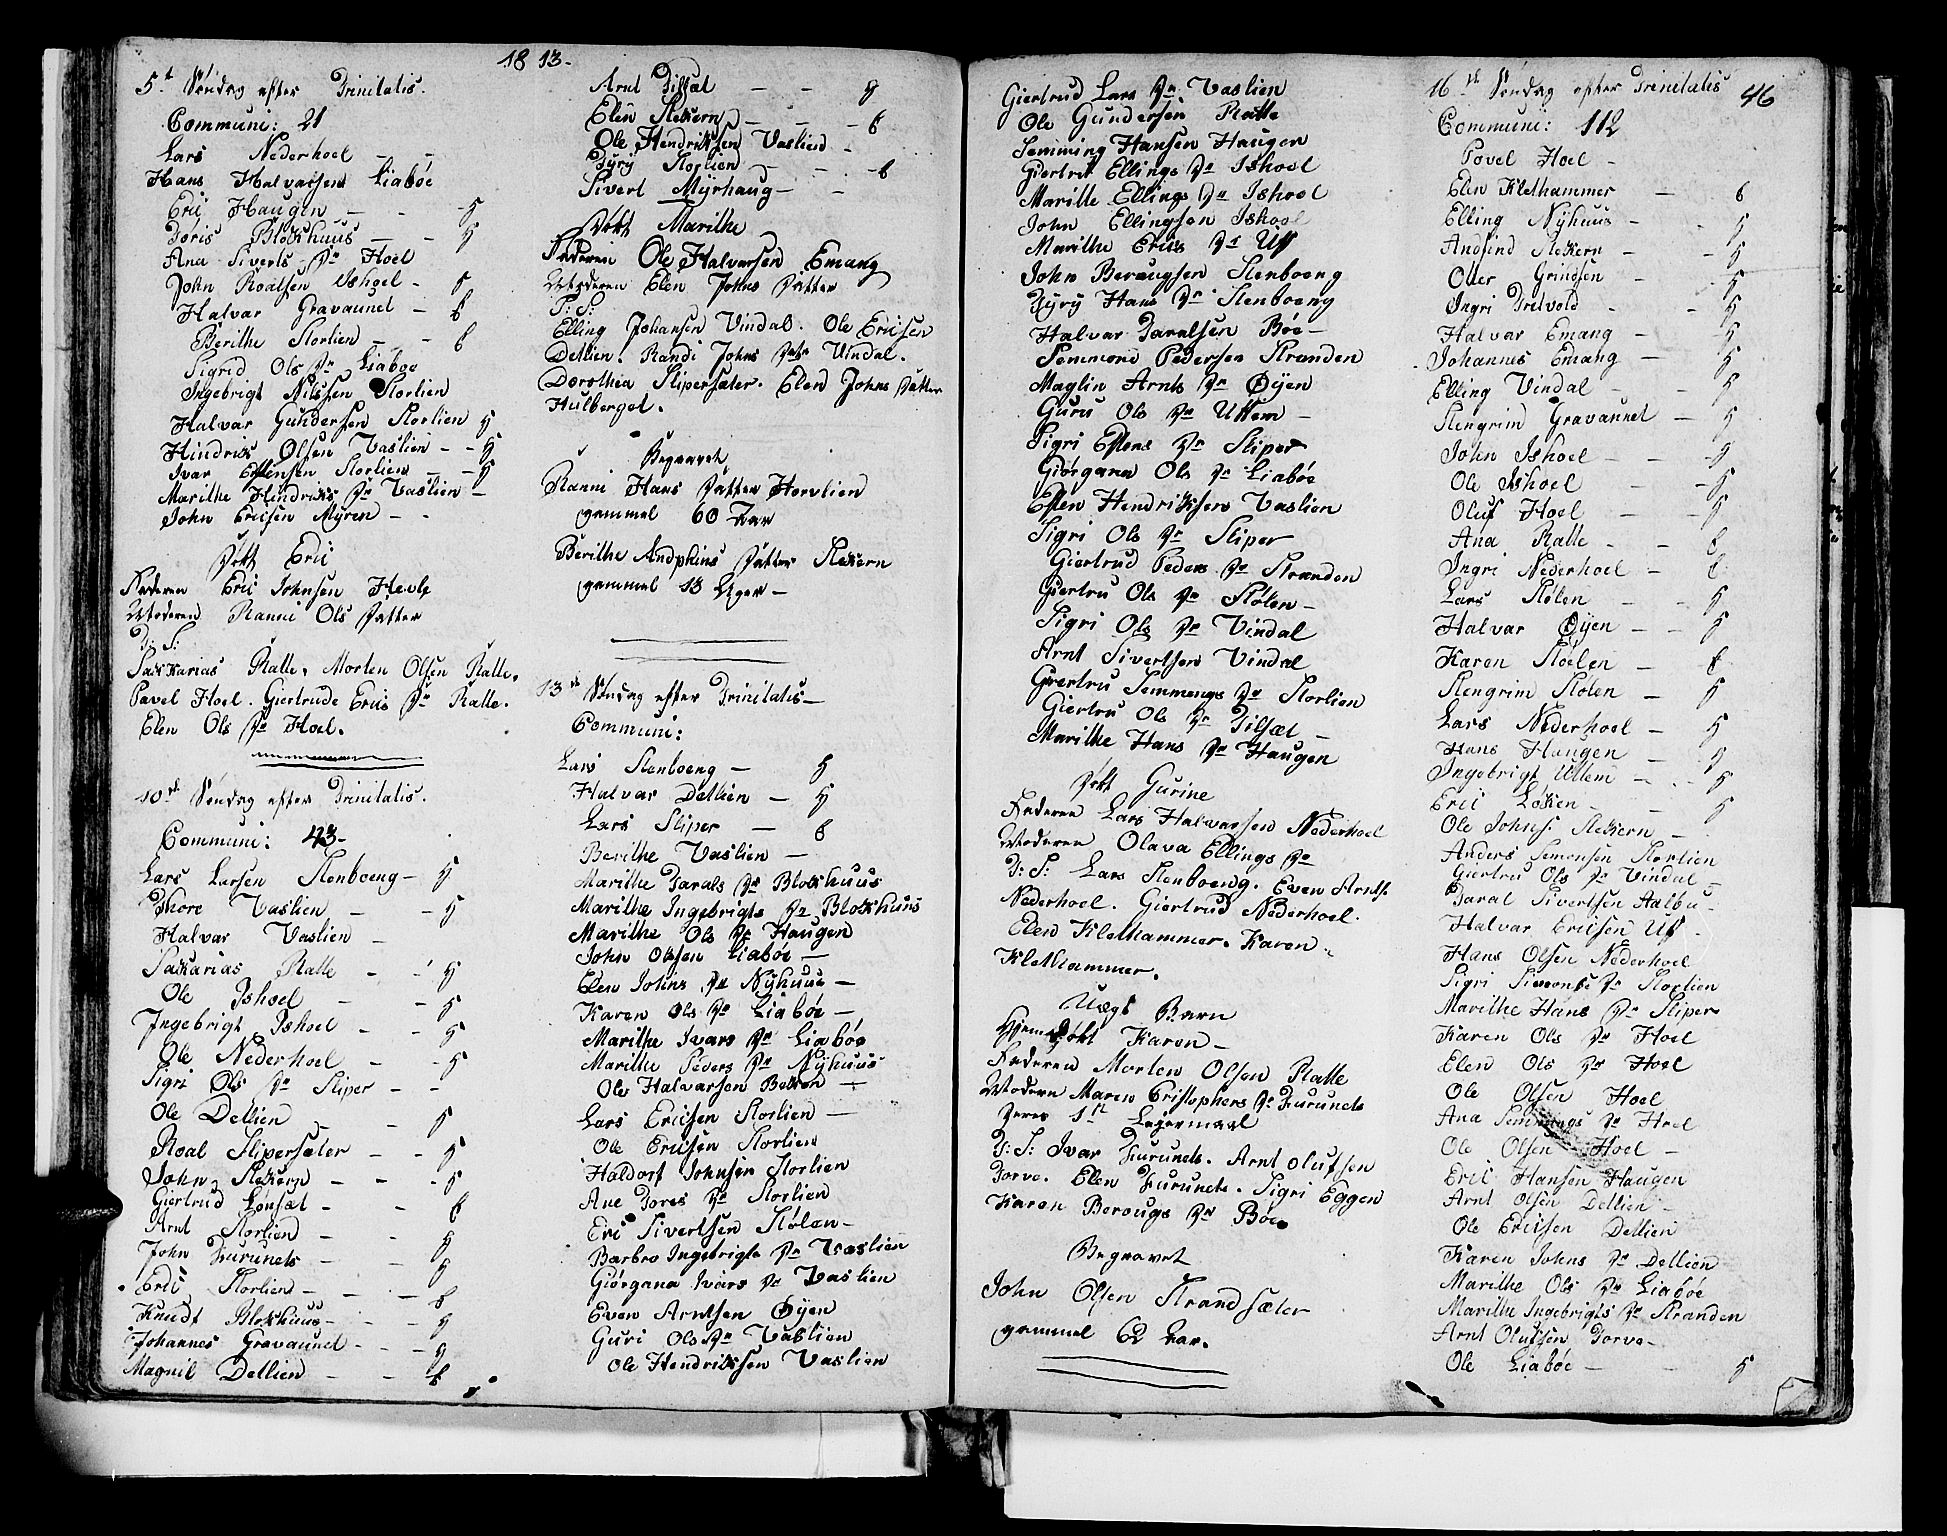 1813.
5t Søndag efter Trinitatis.
Communi: 21
Lars Nederhoel - -
Hans Halvarsen Liabøe
Eric Haugen - - 5
Joris Blokhuus - - 5
Ana Siverts Dr Hoel
John Roalsen Ishoel - 5
Halvar Gravaunet - 6
Berithe Storlien - - 6
Sigrid Ols Dr Liaboe
Ingebrigt Nilssen Storlien
Halvar Gundersen Storlien 5
Hindrik Olsen Vaslien - - 5
Ivar Estensen Storlien - - 5
Marithe Hendriks Dr Vaslien -
John Ericsen Myren - -
Døbt Eric
Faderen Eric Johnsen Hevle
Moderen Ranni Ols Datter
T: S:
Sackarias Ratte, Morten Olsen Ratte,
Pavel Hoel. Giertrude Erics Dr Ratte.
Elen Ols Dr Hoel.
10de Søndag efter Trinitatis.
Communi: 43-
Lars Larsen Stenboeng - 5
Thore Vaslien - - 5
Halvar Vaslien -
Sakarias Ratte - - 5
Ole Ishoel - - 5
Ingebrigt Ishoel - - 5
Ole Nederhoel - - 5
Sigri Ols Dr Sliper - -
Ole Detlien - - 5
Roal Slipersæter - - 5
John Stekern - - - 5
Giertrud Lønsæt - - 6
Arnt Storlien - - 5
John Furunets - - 5
Eric Storlien - - - 6
Knudt Blokhuus - - - 5
Johannes Gravaunet - - - 5
Magnil Detlien - - 6
Arnt Tilsæt - - 5
Elen Stekern - - - 6
Ole Hendriksen Vaslien -
Gyrÿ Storlien - - - 6
Sivert Mÿrhaug - -
Døbt Marithe
Faderen Ole Halvarsen Emang
Moderen Elen Johns Datter
T: S:
Elling Johansen Vindal. Ole Ericsen
Detlien. Randi Johns Datr Vindal.
Dorothea Slipersæter. Elen Johns Datter
Hulberget.
Begravet
Ranni Hans Datter Horvlien
gammel 60 Aar
Berithe Andphins Datter Stekern
gammel 18 Uger -
13de Søndag efter Trinitatis -
Communi:
Lars Stenboeng - 5
Halvar Detlien - 5
Lars Sliper - 6
Berithe Vaslien -
Marithe Tarals Dr Blokhuus
Marithe Ingebrigts Dr Blokhuus
Marithe Ols Dr Haugen
John Olsen Liabøe -
Elen Johns Dr Nÿhuus -
Karen Ols Dr Liabøe -
Marithe Ivars Dr Liabøe
Marithe Peders Dr Nÿhuus
Ole Halvarsen -
Lars Ericsen Storlien -
Ole Ericsen Storlien
Haldorf Johnsen Storlien
Ane Tores Dr Storlien
Eric Sivertsen Stølen -
Barbro Ingebrigts Dr Vaslien
Giørgana Ivars Dr Vaslien
Even Arntsen Øyen
Guri Ols Dr Vaslien
Ole Hendriksen Vaslien
46
Giertrud Lars Dr Vaslien
Ole Gundersen Ratte
Semming Hansen Haugen
Giertru Ellings Dr Ishoel
Marithe Ellings Dr Ishoel
John Ellingsen Ishoel
Marithe Erics Dr Uf
John Beraugsen Stenboeng
Gyrÿ Hans Dr Stenboeng
Halvar Taralsen Bøe -
Semmone Pedersen Stranden
Maglin Arnts Dr Øyen
Guru Ols Dr Uttem -
Sigri Estens Dr Sliper
Giørgana Ols Dr Liabøe
Esten Hendriksen Vaslien
Sigri Ols Dr Sliper
Giertrud Peders Dr Stranden
Giertru Ols Dr Stølen -
Sigri Ols Dr Vindal
Arnt Sivertsen Vindal
Giertru Semmengs Dr Storlien
Giertru Ols Dr Tilsæt -
Marithe Hans Dr Haugen
Døbt Gurine
Faderen Lars Halvarsen Nederhoel
Moderen Olava Ellings Dr
T: S: Lars Stenboeng. Even Arnts.
Nederhoel. Giertrud Nederhoel.
Elen Klethammer. Karen
Klethammer.
Uægt Barn
Hjemedøbt Karen -
Faderen Morten Olsen Ratte
Moderen Maren Cristophers Dr Furunets
Deres 1st Leiermaal
T: S: Ivar Furunets. Arnt Olufsen
Torve. Elen Furunets. Sigri Eggen
Karen Berougs Dr Bøe
Begravet
John Olsen Strandsæter
gammel 62 Aar.
16de Søndag efter Trinitatis
Communi: 112
Pavel Hoel -
Elen Klethammer - 6
Elling Nÿhuus - 5
Andfind Stekern - - 5
Oller Grindsen - 5
Ingri Tretvold - - 5
Halvar Emang - 5
Johannes Emang - 5
Elling Vindal - - 5
Stengrim Gravaunet - 5
John Ishoel - - 5
Ole Ishoel - 5
Oluf Hoel - - 5
Ana Ratte - - 6
Ingri Nederhoel - 6
Lars Stølen - - 5
Halvar Øyen - - 5
Karen Stoelen - 6
Stengrim Stølen - 5
Lars Nederhoel - 5
Hans Haugen - 5
Ingebrigt Uttem - - 5
Eric Løken - - 5
Ole Johns: Stekern -
Anders Semonsen Storlien
Giertru Ols Dr Vindal -
Taral Sivertsen Aalbu -
Halvar Ericsen Uf -
Hans Olsen Nederhoel
Sigri Simonts Dr Storlien
Marithe Hans Dr Sliper
Karen Ols Dr Hoel
Elen Ols Dr Hoel
Ole Olsen Hoel
Ana Semmings Dr Hoel
Ole Olsen Hoel -
Eric Hansen Haugen
Arnt Olsen Detlien -
Ole Ericsen Detlien
Karen Johns Dr Detlien
Marithe Ols Dr Liabøe
Marithe Ingebrigts Dr Stranden
Arnt Olufsen Torve -
Ole Liabøe - - 5